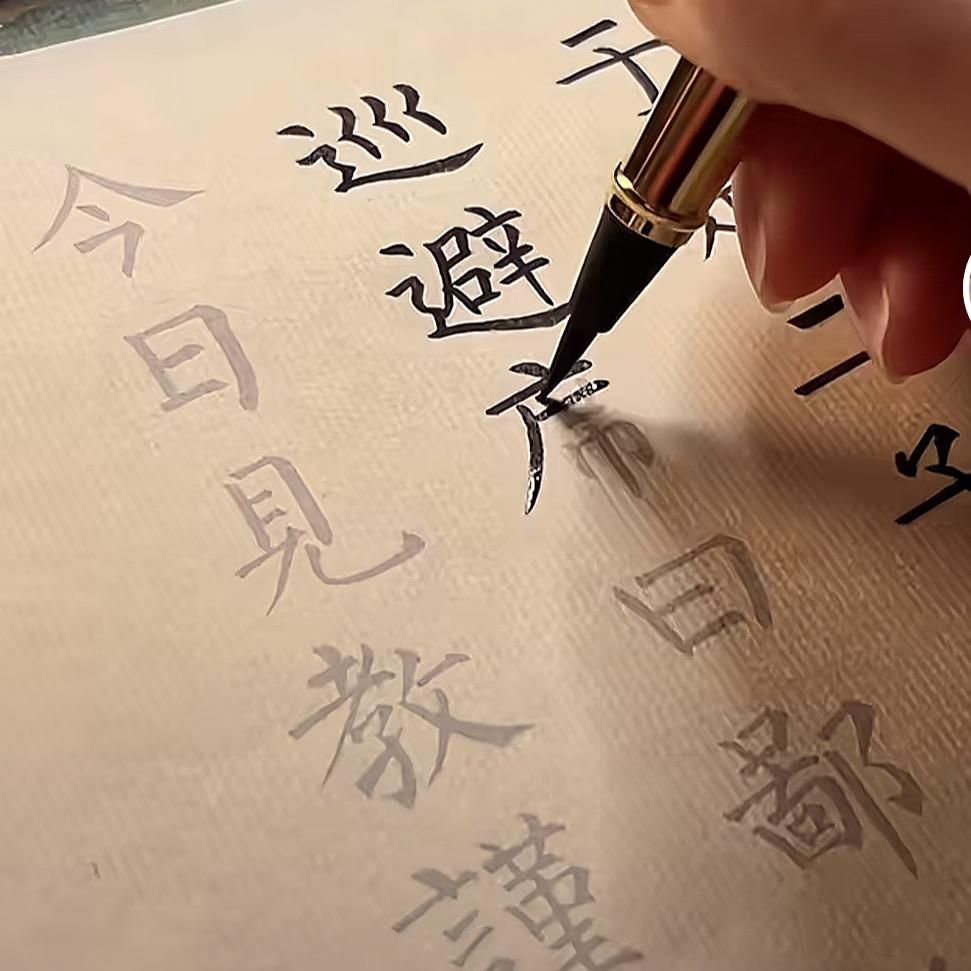 于二子
巡避席曰鄙
今日見教謹